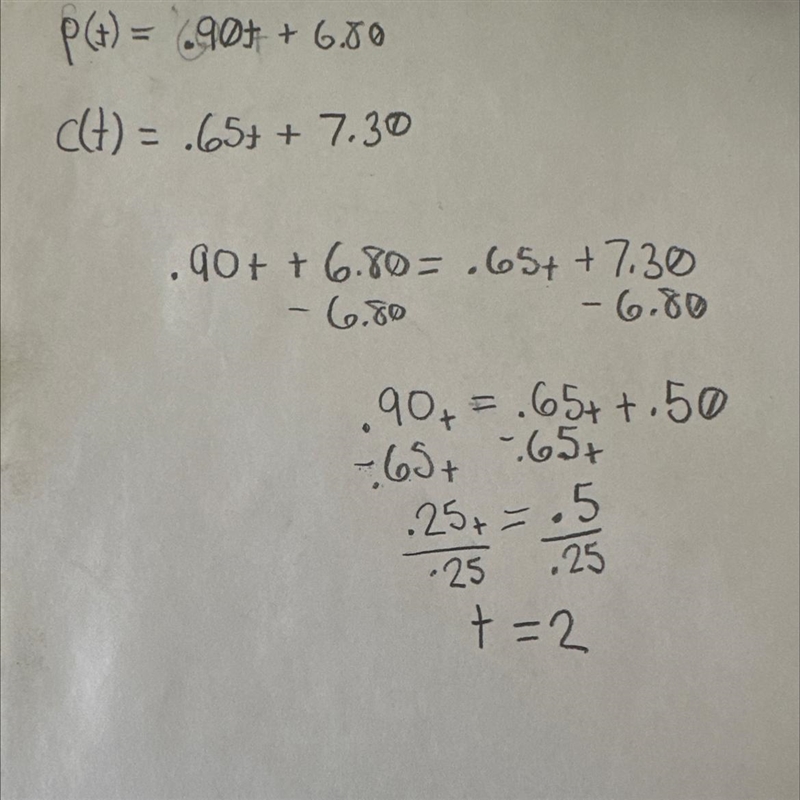 P(t) = .90t + 6.80
C(t) = .65t + 7.30
.90t + 6.80 = .65t + 7.30
- 6.80 - 6.80
.90t = .65t + .50
-.65t -.65t
.25t = .5
.25 .25
t = 2